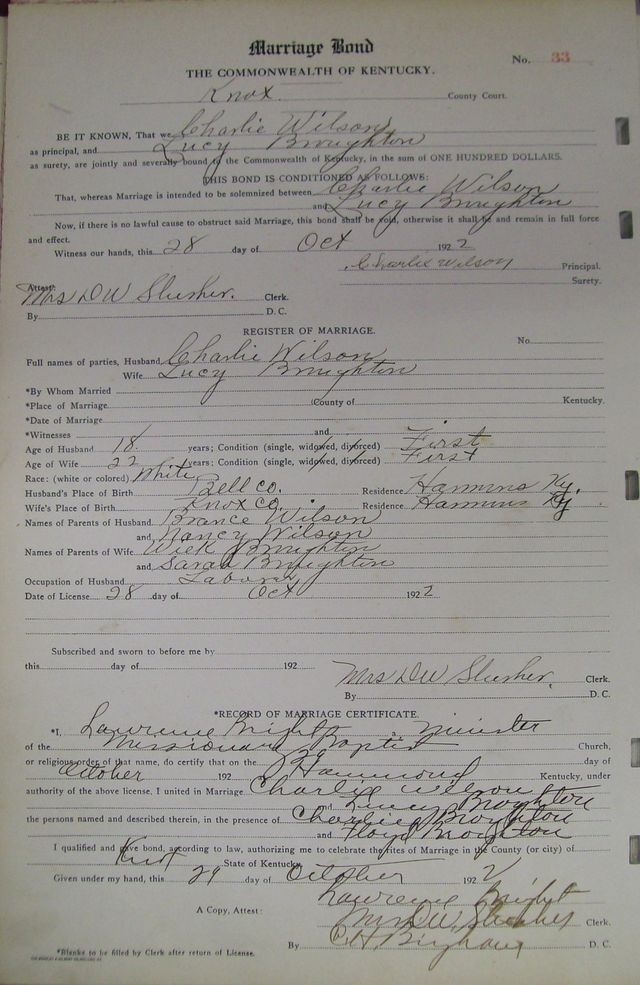 Marriage Bond
No. 33
THE COMMONWEALTH OF KENTUCKY.
Knox County Court.
BE IT KNOWN, That we Charlie Wilson
as principal, and Lucy Broughton
as surety, are jointly and severally bound to the Commonwealth of Kentucky, in the sum of ONE HUNDRED DOLLARS.
THIS BOND IS CONDITIONED AS FOLLOWS:
That, whereas Marriage is intended to be solemnized between Charlie Wilson
and Lucy Broughton
Now, if there is no lawful cause to obstruct said Marriage, this bond shall be void, otherwise it shall be and remain in full force
and effect.
Witness our hands, this 28 day of Oct 1922
Charlie Wilson Principal.
Surety.
Attest:
Mrs D W Slusher. Clerk.
By D. C.
REGISTER OF MARRIAGE.
No.
Full names of parties, Husband Charlie Wilson
Wife Lucy Broughton
*By Whom Married
*Place of Marriage (County of Kentucky.
*Date of Marriage
*Witnesses and
Age of Husband 18 years; Condition (single, widowed, divorced) First
Age of Wife 22 years; Condition (single, widowed, divorced) First
Race: (white or colored) White
Husband's Place of Birth Bell Co. Residence Hammons Ky.
Wife's Place of Birth Knox Co. Residence Hammons Ky
Names of Parents of Husband Brance Wilson
and Nancy Wilson
Names of Parents of Wife Broughton
and Sarah Broughton
Occupation of Husband Laborer
Date of License 28 day of Oct 1922
Subscribed and sworn to before me by
this day of 192
Mrs D W Slusher. Clerk.
By D. C.
*RECORD OF MARRIAGE CERTIFICATE.
*I, Lawrence Bright minister
of the Missionary Baptist Church,
or religious order of that name, do certify that on the day of
October 192 Hammond Kentucky, under
authority of the above license, I united in Marriage Charlie Wilson
and Lucy Broghton
the persons named and described therein, in the presence of Charlie Broghton
and Floyd Broghton
I qualified and give bond, according to law, authorizing me to celebrate the rites of Marriage in the County (or city) of
Knox State of Kentucky.
Given under my hand, this 29 day of October 1922
Lawrence Bright
A Copy, Attest: Mrs D W Slusher Clerk.
By D. C.
*Blanks to be filled by Clerk after return of License.